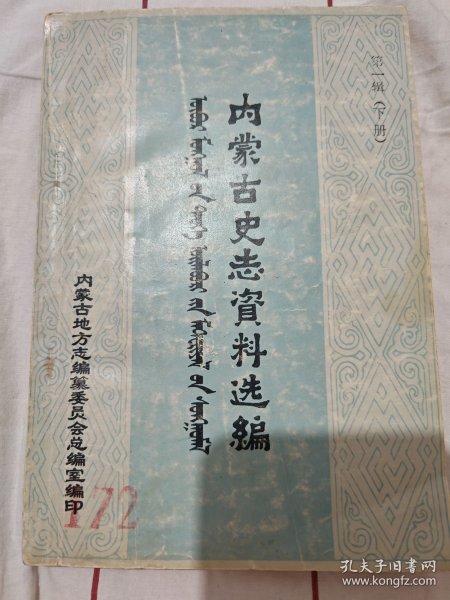 第一辑（下册）
内蒙古史志資料选编
内蒙古地方志编纂委员会总编室编印
172
孔夫子旧书网
www.kongfz.com